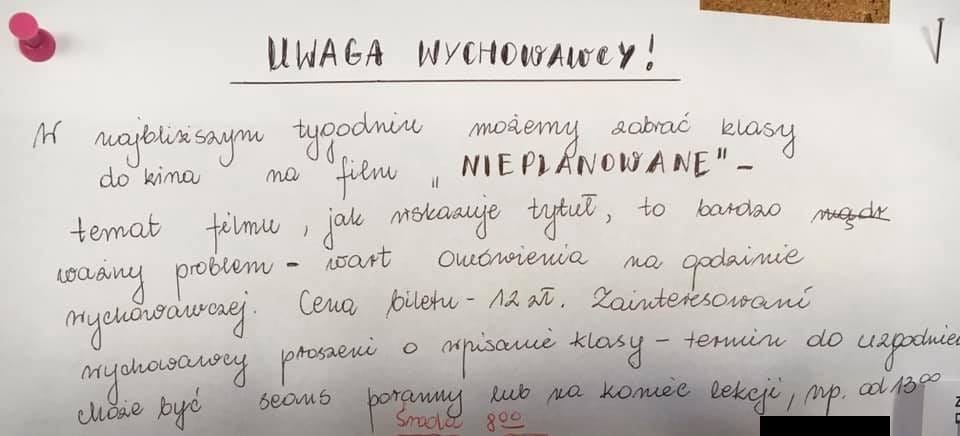 UWAGA WYCHOWAWCY!
V
W najbliższym tygodniu możemy zabrać klasy
do kina na film „NIEPLANOWANE" –
temat filmu, jak wskazuje tytuł, to bardzo
ważny problem – wart omówienia na godzinie
wychowawczej. Cena biletu – 12 zł. Zainteresowani
wychowawcy proszeni o wpisanie klasy – termin do uzgodnie
Może być seans poranny lub na koniec lekcji, np. od 13⁰⁰
Środa 8⁰⁰